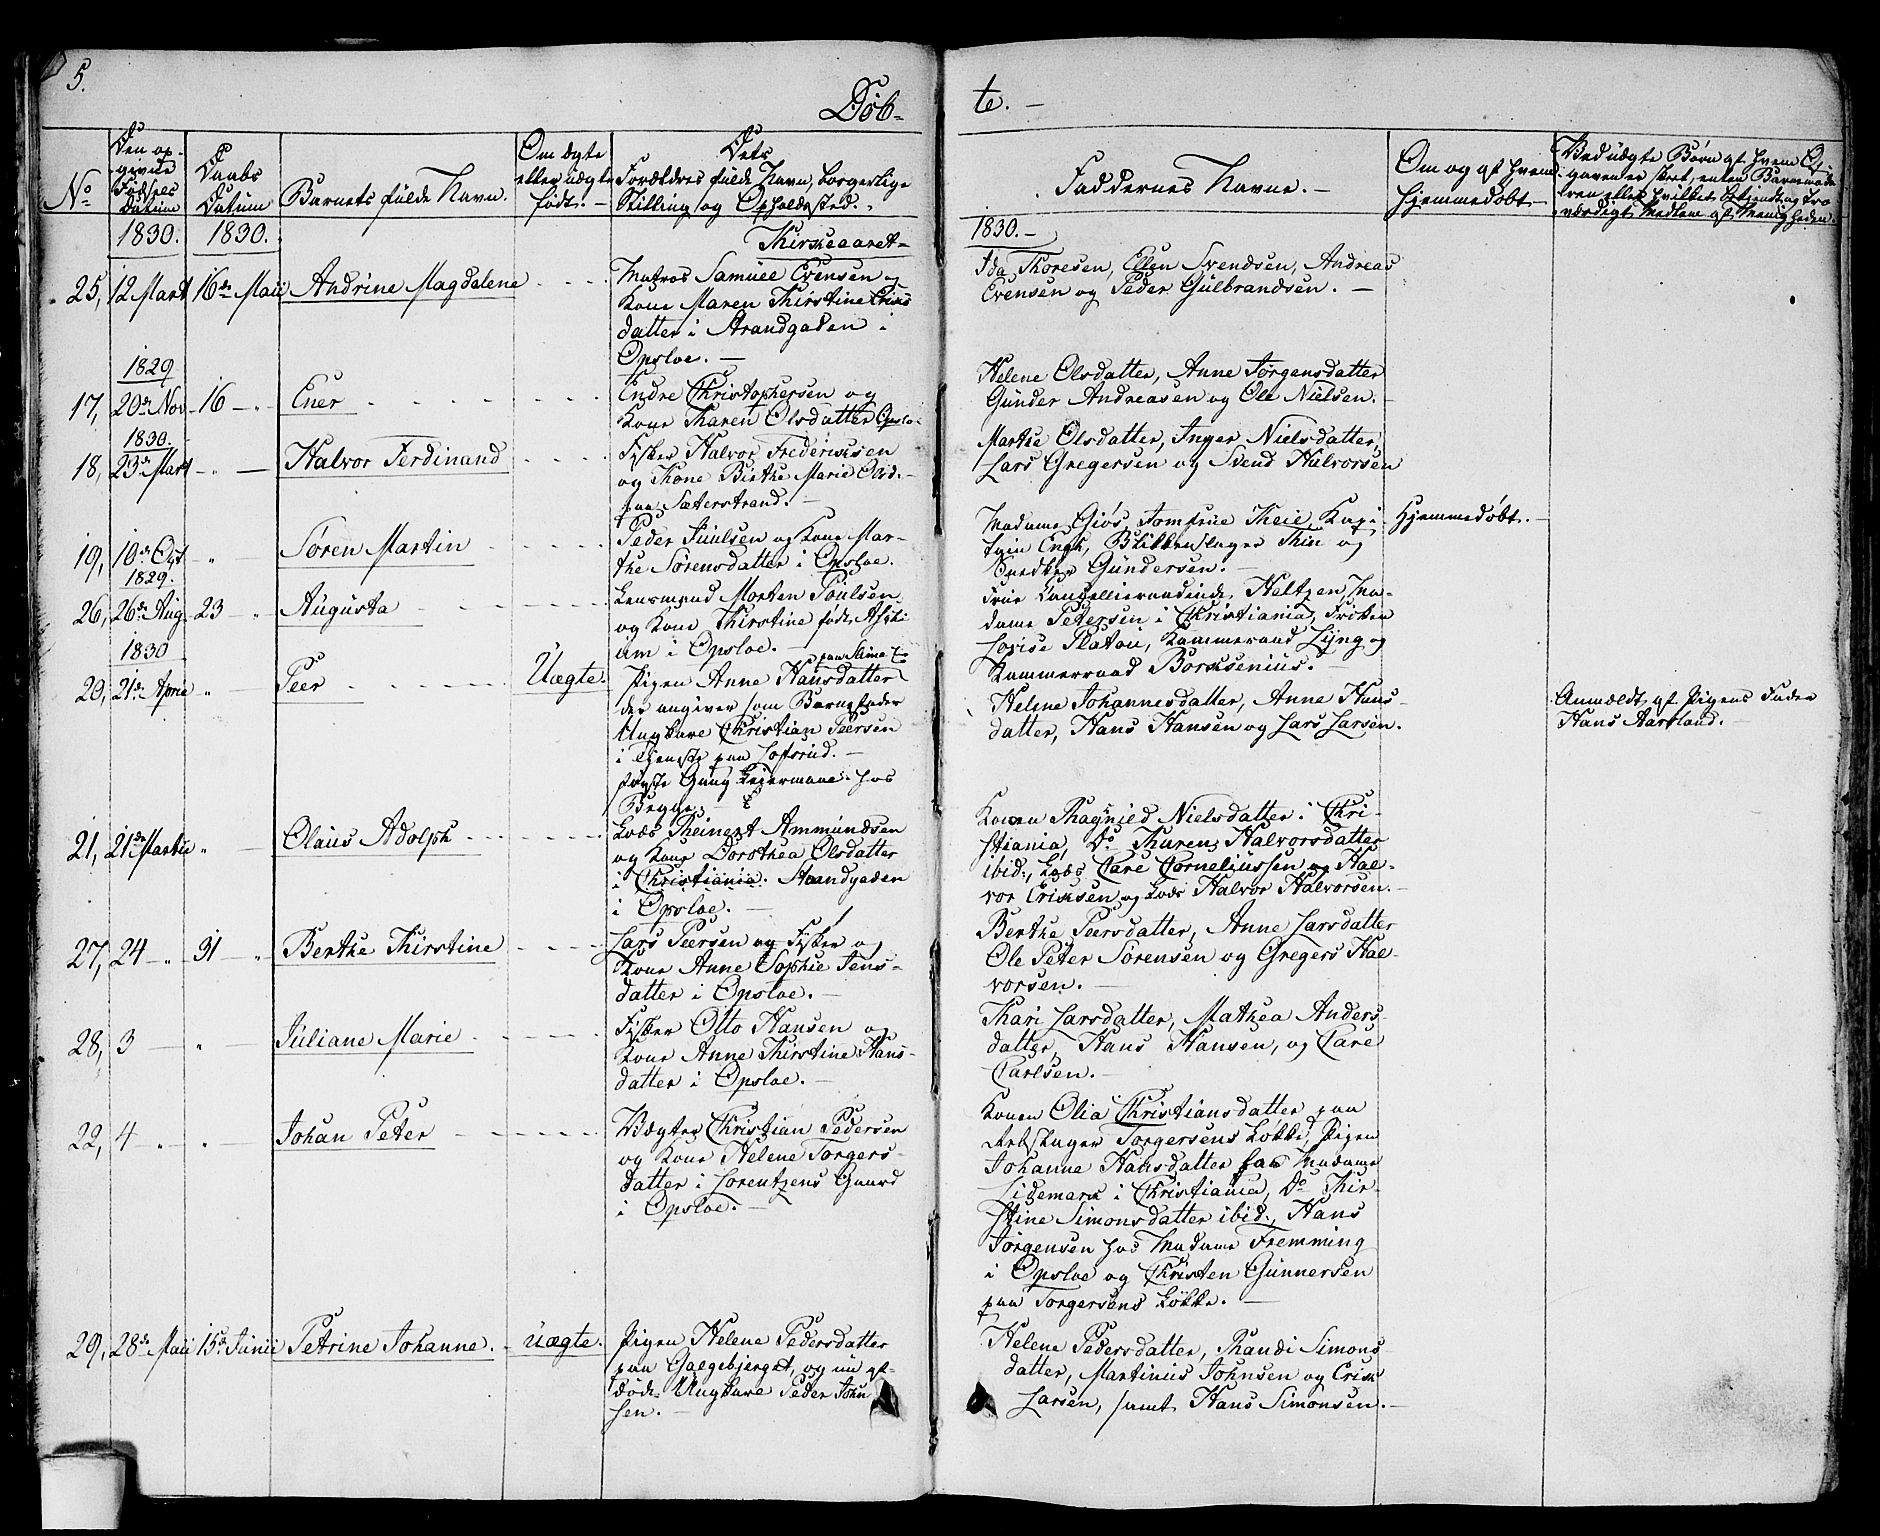 5.
Döb-
te. -
No
Den op-
givne
Fødsels
Datum
Daabs
Datum
Barnets fulde Navn.
Om ægte
eller uægte
født. -
Dets
Forældres fulde Navn, borgerlige
Stilling og Opholdssted.
Faddernes Navne. -
Om og af hvem
hjemmedøbt
Ved uægte Børn af hvem
1830.
1830.
Kirkeaaret
1830. -
25, 12 Mart 16de Maii Andrine Magdalene
Matros Samuel Evensen og
Kone Maren Kirstine Eriks
datter i Strandgaden i
Opsloe. -
Ida Thoresen, Ellen Svendsen, Andreas
Evensen og Peder Gulbrandsen. -
1829
17, 20de Nov. 16 - " - Ener
Endre Christophersen og
Kone Karen Olsdatter Opslo
Helene Olsdatter, Anne Jørgensdatter
Gunder Andreasen og Ole Nielsen.
1830.
18, 23de Mart - " - Halvor Ferdinand
Fisker Halvor Frederiksen
og Kone Birthe Marie Olsd.
paa Sæterstrand. -
Marthe Olsdatter, Inger Nielsdatter,
Lars Gregersen og Svend Halvorsen
19, 10de Oct " Søren Martin
1829.
Peder Juulsen og Kone Mar-
the Sørensdatter i Opsloe.
Madame Giøs, Jomfrue Theie, Kap-
tain Engh, Blikkenslager Thin og
Snedker Gundersen. -
Hjemmedøbt. -
26, 26de Aug. 23 - " Augusta
Lensmand Morten Poulsen
og Kone Kirstine født
um i Opsloe. -
Frue Cancellieraadinde Heltzen, Ma-
dame Petersen i Christiania, Frøken
Lovise Platou, Kammerraad Lyng og
Kammerraad Borchsenius. -
1830
20, 21de April " Peer
Uægte.
Pigen Anne Hansdatter
der angiver som Barnefader
Ungkarl Christian Peersen
i Tjeneste paa Lofsrud. -
første Gang Leiermaal hos
Begge.
Helene Johannesdatter, Anne Hans-
datter, Hans Hansen og Lars Larsen.
Anmeldt af Pigens Fader
Hans Aarsland. -
21, 21de Martii " Olaus Adolph
Lods Reinert Ammundsen
og Kone Dorothea Olsdatter
i Christiania. Strandgaden
i Opsloe. -
Konen Ragnild Nielsdatter i Chri-
stiania, Do Karen Halvorsdatter
ibid:, Lods Carl Corneliussen og Hal-
vor Eriksen og Lods Halvor Halvorsen. -
27, 24 - " - 31 - " Berthe Kirstine
Lars Peersen og Fisker og
Kone Anne Sophie Jens-
datter i Opsloe. -
Berthe Peersdatter, Anne Larsdatter
Ole Peter Sørensen og Gregers Hal-
vorsen. -
28, 3 - " - Juliane Marie
Fisker Otto Hansen og
Kone Anne Kirstine Hans-
datter i Opsloe. -
Kari Larsdatter, Mathea Anders-
datter, Hans Hansen, og Carl
Carlsen. -
22, 4 " " - Johan Peter
Vægter Christian Pedersen
og Kone Helene Torgers-
datter i Lorentzens Gaard
i Opsloe. -
Konen Olia Christiansdatter paa
Torgersens Løkke, Pigen
Johanne Hansdatter hos Madame
Lidemark i Christiania, Do Kir-
stine Simonsdatter ibid:, Hans
Jørgensen hos Madame Fremming
i Opsloe og Christen Gunnersen
paa Torgersens Løkke. -
29, 28de Maii 15de Junii Petrine Johanne.
uægte.
Pigen Helene Pedersdatter
paa Galgebjerget, og nu af-
døde Ungkarl Peder John
sen. -
Helene Pedersdatter, Randi Simons-
datter, Martinus Johnsen og Erik
Larsen, samt Hans Simonsen. -